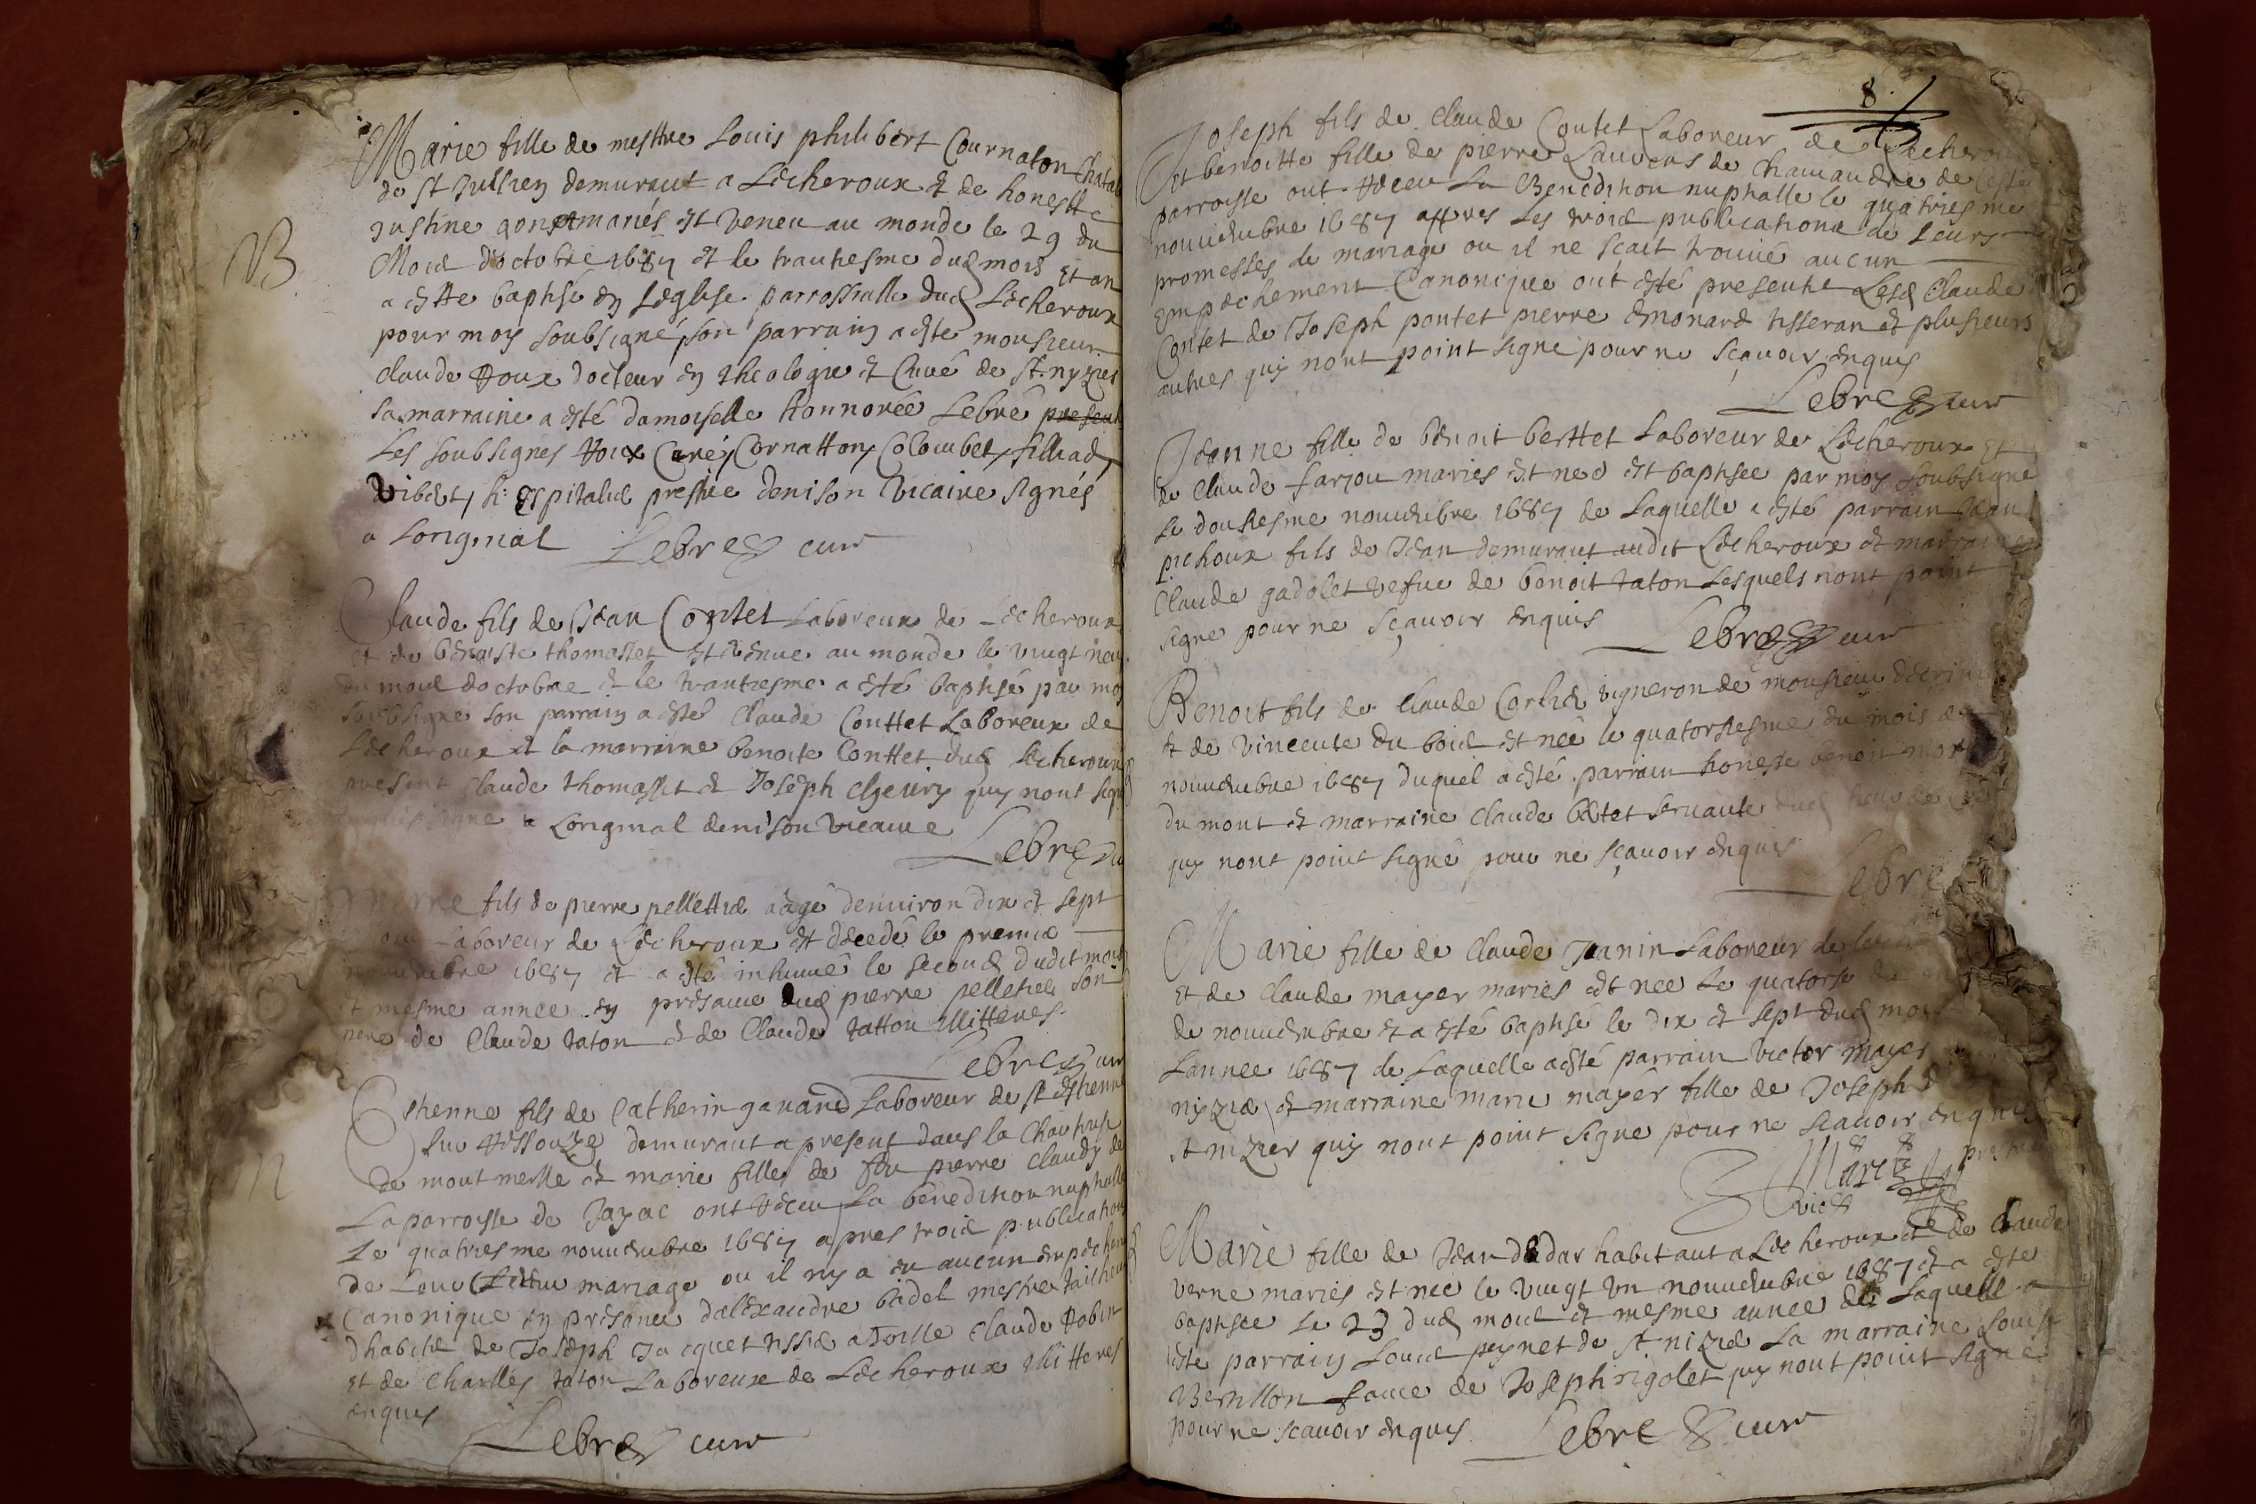 B
Marie fille de mestre Louis philibert Cournaton Chatal
de st Jullien demurant a Lescheroux et de honeste
Justine gon mariés est veneu au monde le 29 du
Mois doctobre 1687 et le trantiesme dud mois et an
a este baptisé en Leglise parrossialle dud Lescheroux
pour moy soubsigné, son parrain a esté monsieur
claude Roux docteur en theologie et Curé de st. nyzies
sa marraine a esté damoiselle honnorée Lebré
Les soubsignes Roux Curé, Cornatton, Colombet, filliad,
vibert, h: espitalier prestre denison vicaire signés
a Longinal Lebre cure
Claude fils de Jean Contet Laboreur de Lescheroux
et de benoiste thomasset est venue au monde le vingt neu
du mois doctobre et le trantiesme a esté baptisé par moy
soubsigne son parrain a esté Claude Conttet Laboreur de
Lescheroux et la marraine benoite Conttet dud Lescheroux
present Claude thomasset et Joseph quy nont signe
a Longinal denison vicaire
Lebre
fils de pierre pellettier aagé denviron dix et sept
Laboreur de Lescheroux est decedé le premier
novembre 1687 et a esté inhumé le second dudit mois
et mesme annee en presance dud pierre pelletier son
pere de Claude taton et de Claude tatton illitteres.
Lebre cure
n
Estienne fils de Catherin gavand Laboreur de st estienne
sur Ressouze demurant a present dans la Chartruse
de mont merlle et marie fille de feu pierre Claudy de
La parroisse de Jayac ont Receu La benediction nuptialle
Le quatriesme novembre 1687 apres trois publications
de Leur mariage ou il ny a eu aucun empeche
Canonique en presance dalexandre bidel mestre tailheur
dhabits de Joseph Jacquet tissier a Toille claude Robin
et de Charlles taton Laboreux de Lescheroux illitteres
enquis
Lebre cure
8
Joseph fils de Claude Contet Laboreur de Lescheroux
et benoitte fille de pierre Laurens de Chamandre de Ceste
parroisse ont Receu La Benediction nuptialle le quatriesme
novembre 1687 appres Les trois publications de Leurs
promesses de mariage ou il ne scait trouvé aucun
empechement Canonique ont esté presents Lesd Claude
Contet de Joseph pontet pierre emonard tisseran et plusieurs
autres quy nont point signe pour ne sçavoir enquis
Lebre cure
Jeanne fille de benoit berttet Laboreur de Lescheroux et
de Claude farjon mariés est neé est baptisee par moy soubsigne
le dousiesme novembre 1687 de Laquelle a esté parrain Jean
pichoux fils de Jean demurant audit Lescheroux et marraine
Claude gadolet vefue de benoit taton Lesquels nont point
signe pour ne sçavoir enquis Lebre cure
Benoit fils de Claude Cortier vigneron de monsieur
et de vincente du bois est neé le quatorsiesme du mois de
novembre 1687 duquel a esté parrain honeste benoit
du mont et marraine Claude bertet servante
quy nont point signé pour ne sçavoir enquis
Lebre
Marie fille de Claude Janin Laboreur de
et de Claude mayer mariés est neé Le quatorse
de novembre et a esté baptisé le dix et sept dud mois
Lannee 1687 de Laquelle a esté parrain victor mayer
nyzier et marraine marie mayer fille de Joseph
st nizier quy nont point signe pour ne scavoir enquis
Marie fille de Jean dedar habitant a Lescheroux et de Claude
verne mariés est neé le vingt un novembre 1687 et a esté
baptisee Le 23 dud mois et mesme annee de Laquelle a
esté parrain Louis peynet de st nizier La marraine Louise
Bernillon fame de Joseph rigolet quy nont point signé
pour ne scavoir enquis Lebre cure